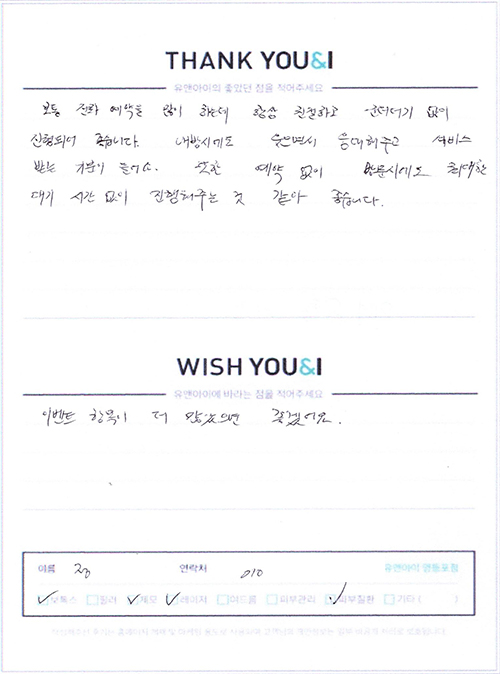 THANK YOU&I
유앤아이의 좋았던 점을 적어주세요
보통 전화 예약을 많이 하는데 항상 친절하고 군더더기 없이
진행되어 좋습니다. 내방시에도 웃으면서 응대해주고 서비스
받는 기분이 들어요. 또한 예약 없이 방문시에도 최대한
대기 시간 없이 진행해주는 것 같아 좋습니다.
WISH YOU&I
유앤아이에 바라는 점을 적어주세요
이벤트 항목이 더 많았으면 좋겠어요.
이름 연락처 010 유앤아이 영등포점
보톡스 필러 제모 레이저 여드름 피부관리 피부질환 기타 ( )